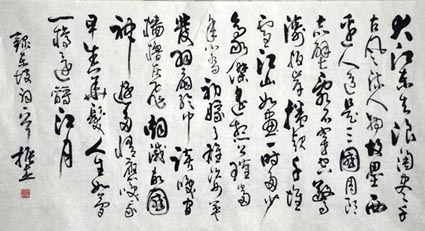 大江東去浪淘盡千
古風流人物故壘西
邊人道是三國周郎
赤壁亂石穿空驚
濤拍岸捲起千堆
雪江山如畫一時多少
豪傑遙想公瑾當
年小喬初嫁了雄姿英
發羽扇綸巾談笑間
檣櫓灰飛煙滅故國
神遊多情應笑我
早生華髮人生如夢
一樽還酹江月
錄東坡詞